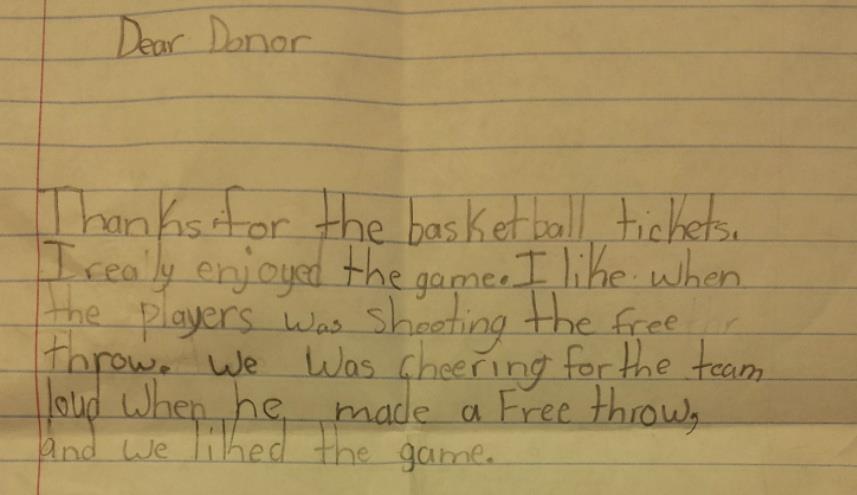 Dear Donor
Thanks for the basketball tickets.
I really enjoyed the game. I like when
the players was shooting the free
throw. We was cheering for the team
loud when he made a free throw,
and we liked the game.